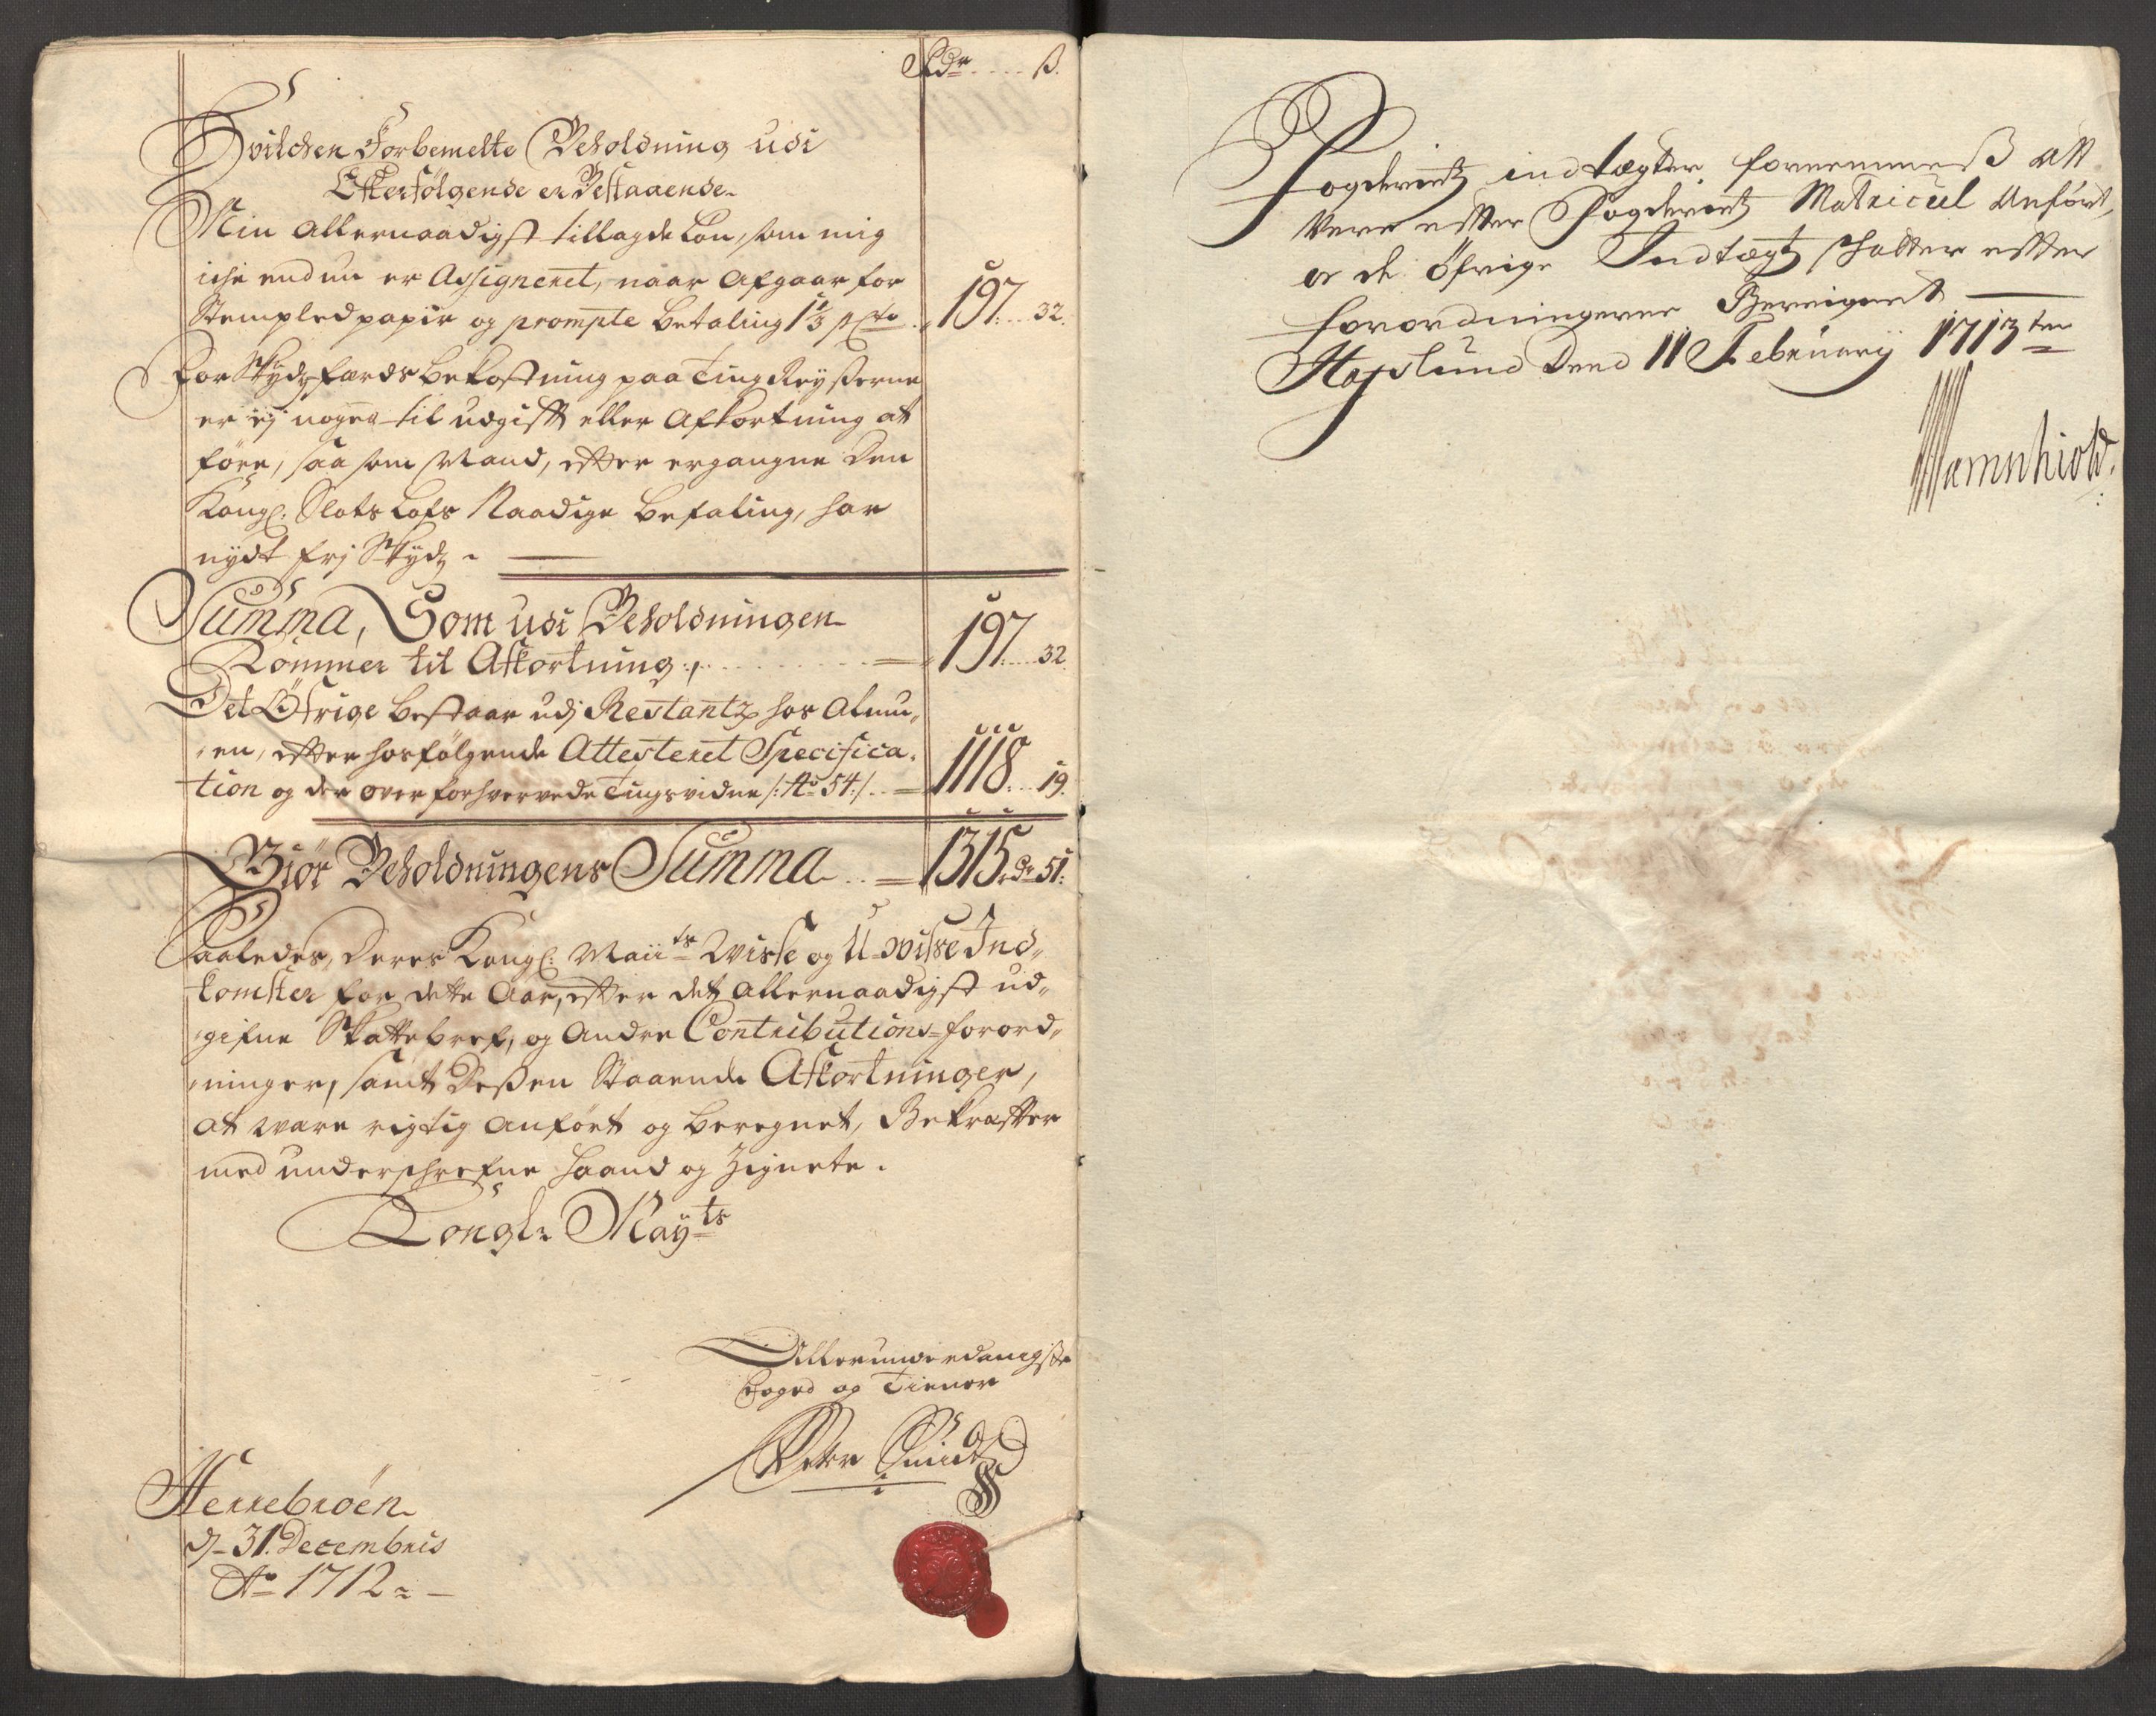 Rdr ..... ß.
Hvilchen Forbemelte Beholdning udi
Efterfølgende er Bestaaende
Min allernaadigst tillagde Løn, som mig
iche endnu er Assigneret, naar afgaar for
Stempled papir og prompte betaling 1⅓ p Cto .. 197 .... 32.
For Skydtsfærds bekostning paa Ting Reyserne
er ej nogen til udgift eller afkortning at
føre, saa som Mand, efter ergangne den
Kongl: Slots Lofs Naadige befaling, har
nydt frj Skyds.
Summa, Som udi Beholdningen
Kommer til Afkortning ........ = 197 .... 32
Det Øfrige bestaar udj Restantz hos Almu-
-en, efter hosfølgende Attesteret Specifica-
tion og der over forhvervede Tingsvidne /: No 54 :/ .. = 1118 ... 19.
Giør Beholdningens Summa .. = 1315 dr 51:
Saaledes, Deres Kongl: Maiits Wisse og U-wisse Ind-
komster for dette Aar, efter det allernaadigst ud-
-gifne Skattebref, og andre Contributions-forord-
-ninger, samt Deßen Staaende Afkortninger,
at være rigtig anført og beregnet, Bekræfter
med underschrefne haand og Zignete.
Kongl: Mayts
Allerunderdanigste
Foged og Tiener
Peter Smidt
Herrebröen
d. 31. Decembris
Ao 1712
Fogderietz indtægter fornemmes att
Vere efter Fogderietz Matricul Anført,
og de øfrige Indtægtz schatter efter
forordningerne Bereignet
Hafslund Dend 11 February 1713ten
Wærnschiold.